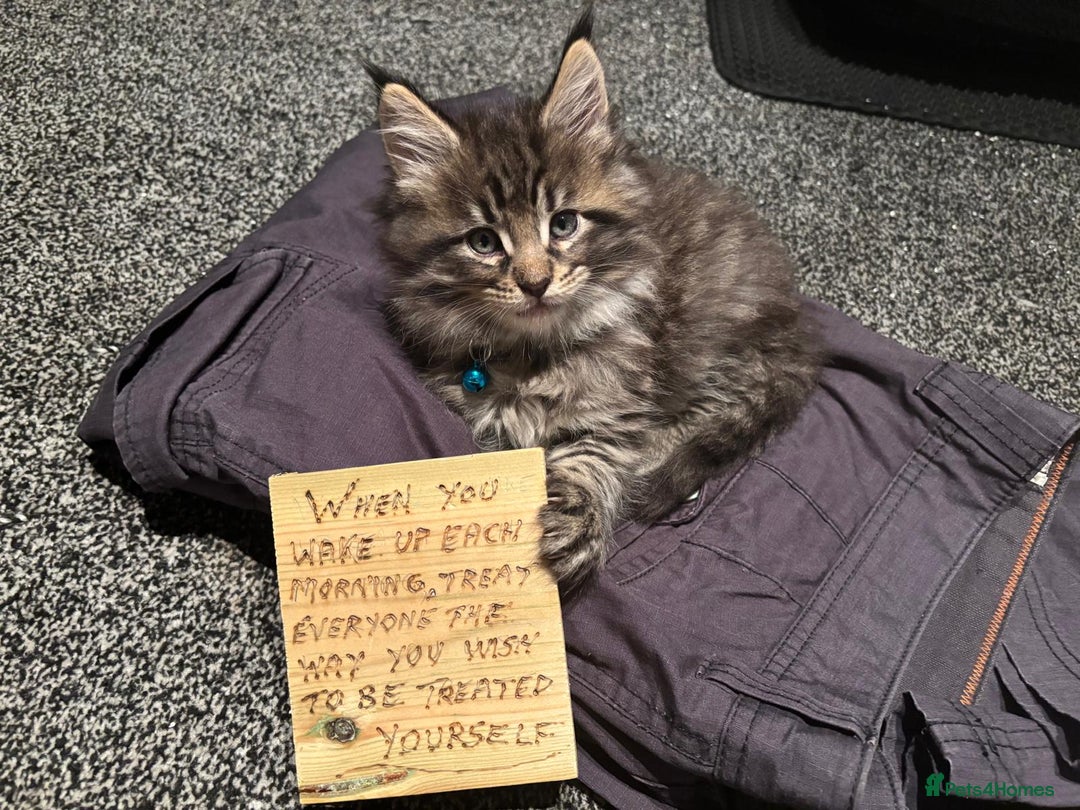 WHEN YOU
WAKE UP EACH
MORNING, TREAT
EVERYONE THE
WAY YOU WISH
TO BE TREATED
YOURSELF
Pets4Homes